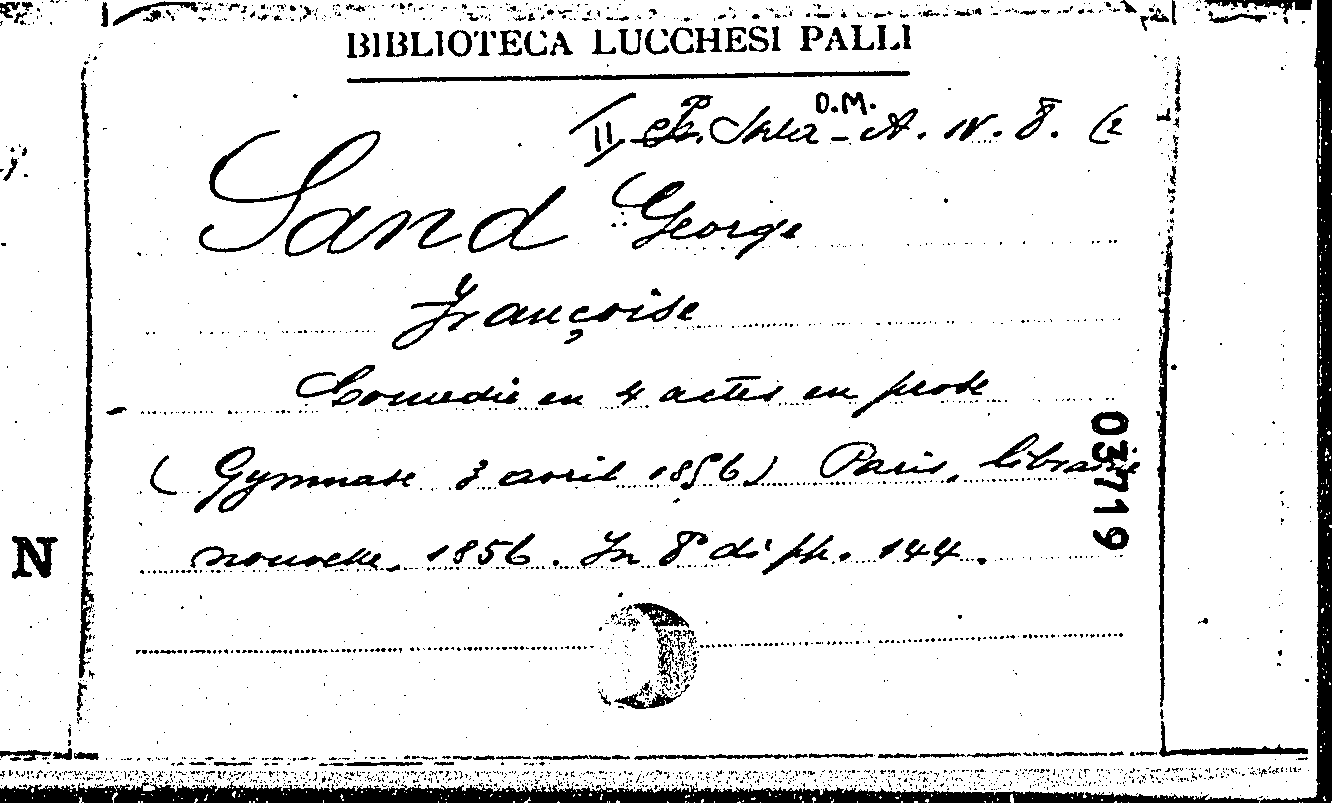 BIBLIOTECA LUCCHESI PALLI
D.M.
II A. IV. 8. (2
Sand George
Françoise
Comedie en 4 actes en prose
(Gymnase 3 avril 1856) Paris, librairie
nouvelle, 1856. In 8° di pp. 144.
03719
N